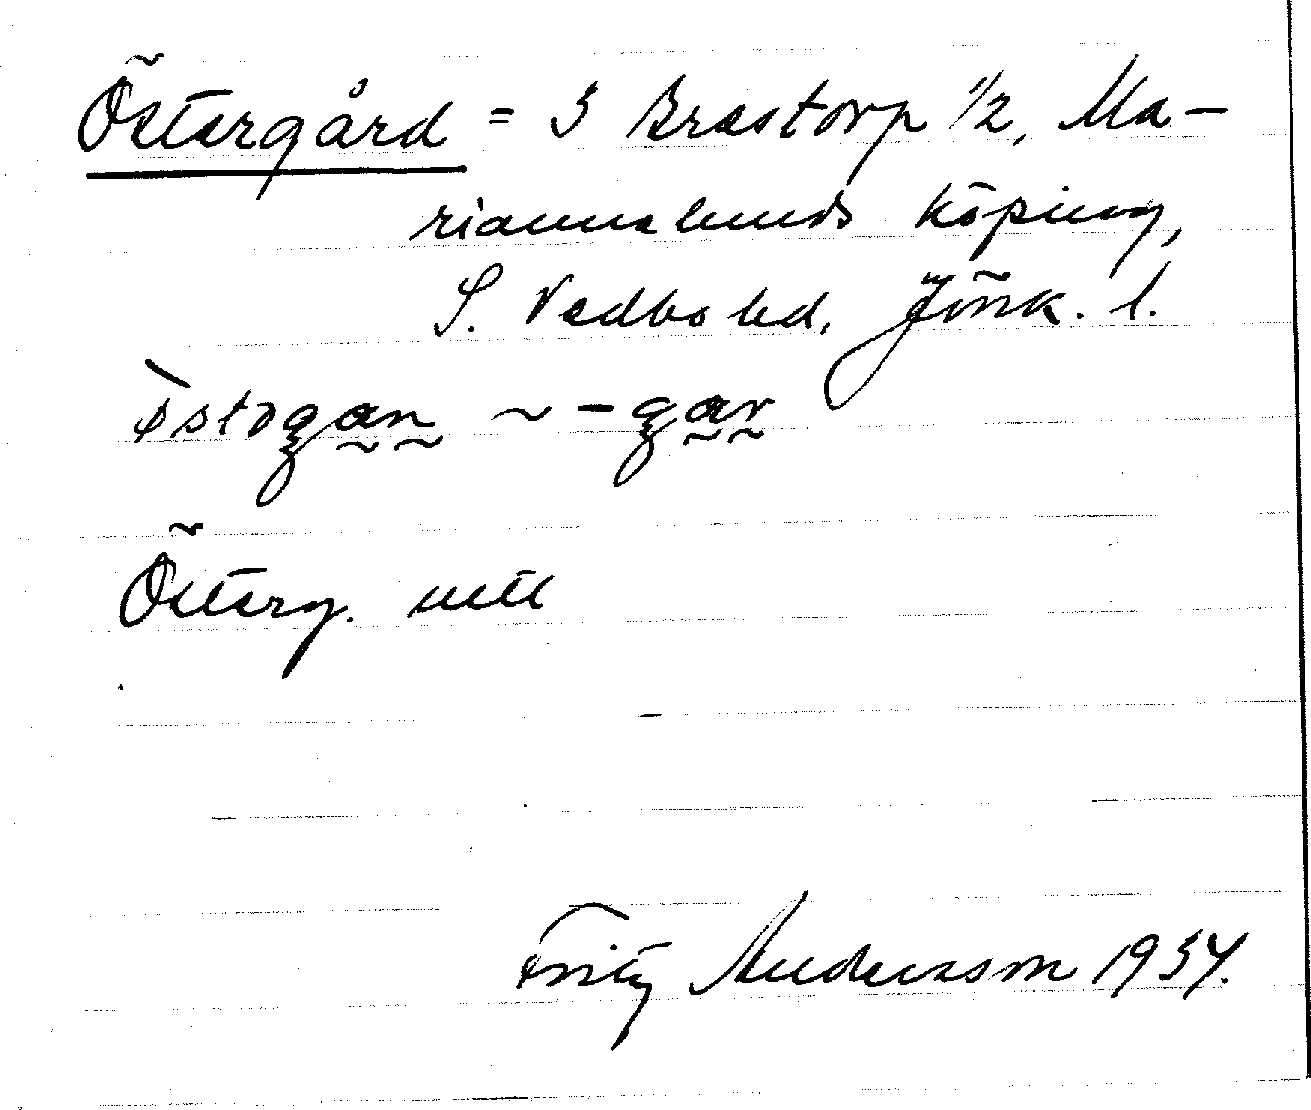 Östergård = 3 Brastorp 1/2, Ma-
riannelunds köping,
S. Vedbo hd, Jönk. l.
östogan ~ -gar
Österg. uttl
Fritz Andersson 1934.